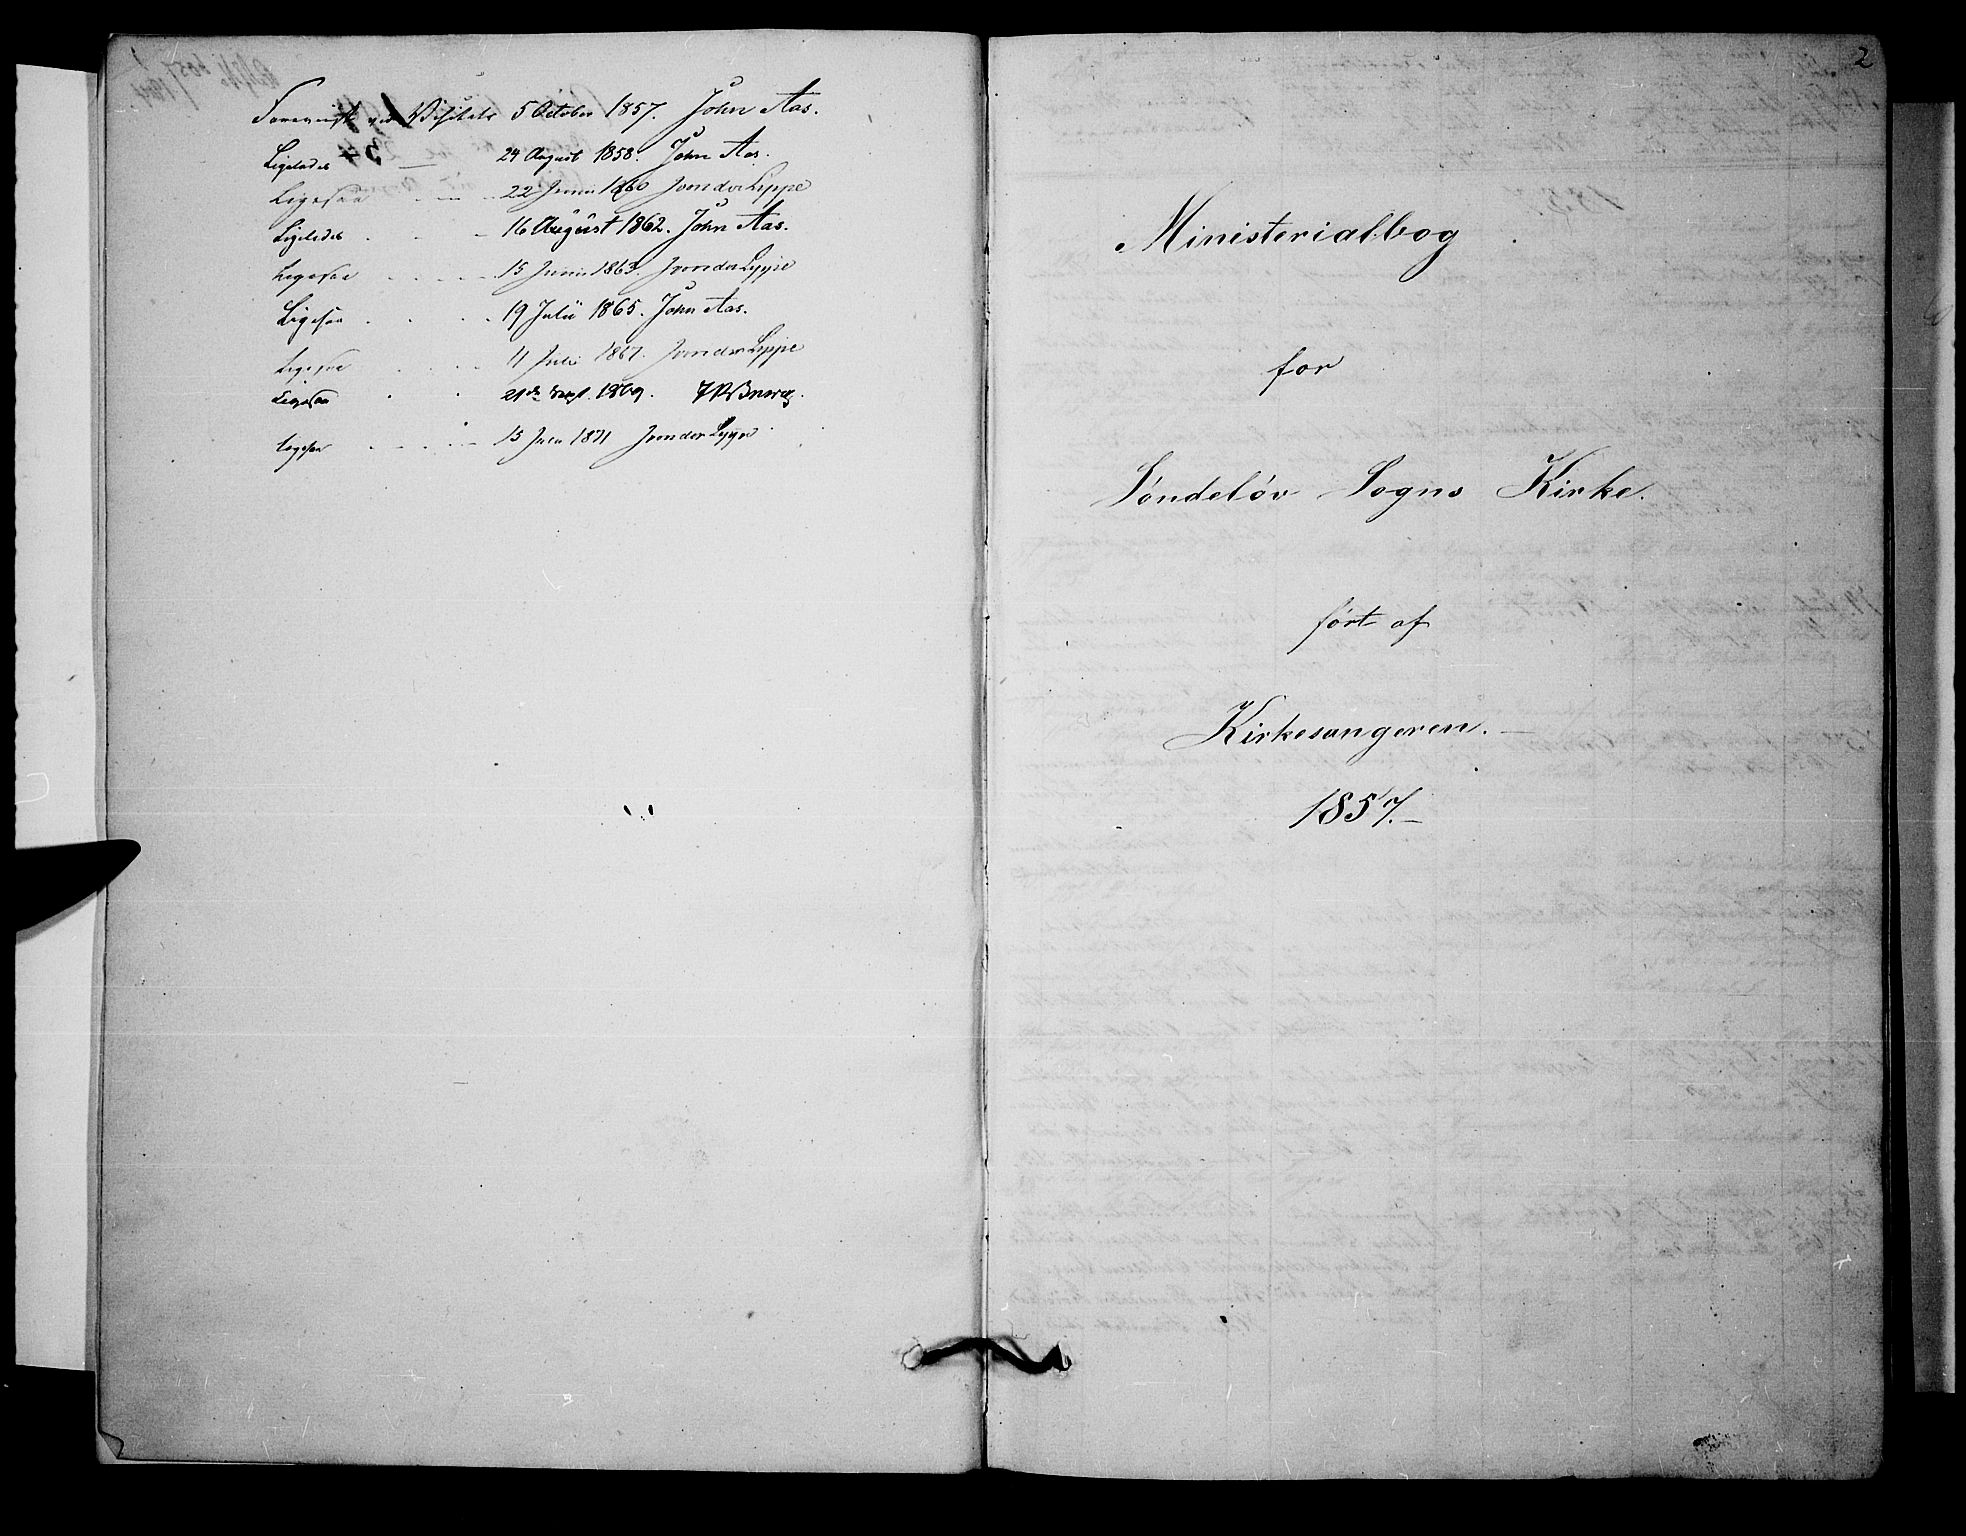 Foreviist ved Visitats 5 October 1857. John Aas.
Ligeledes — 24 August 1858. John Aas.
Ligesaa 22 Juni 1860 J von der Lippe
Ligeledes 16 August 1862. John Aas.
Ligesaa 15 Juni 1863. J von der Lippe
Ligesaa 19 Juli 1865. John Aas.
Ligesaa 11 Juli 1867. J von der Lippe
Ligesaa 21de Sept. 1869.
Ligesaa 15 Juli 1871 J von der Lippe
2
Ministerialbog
for
Söndelöv Sogns Kirke.
fört af
Kirkesangeren.
1857.